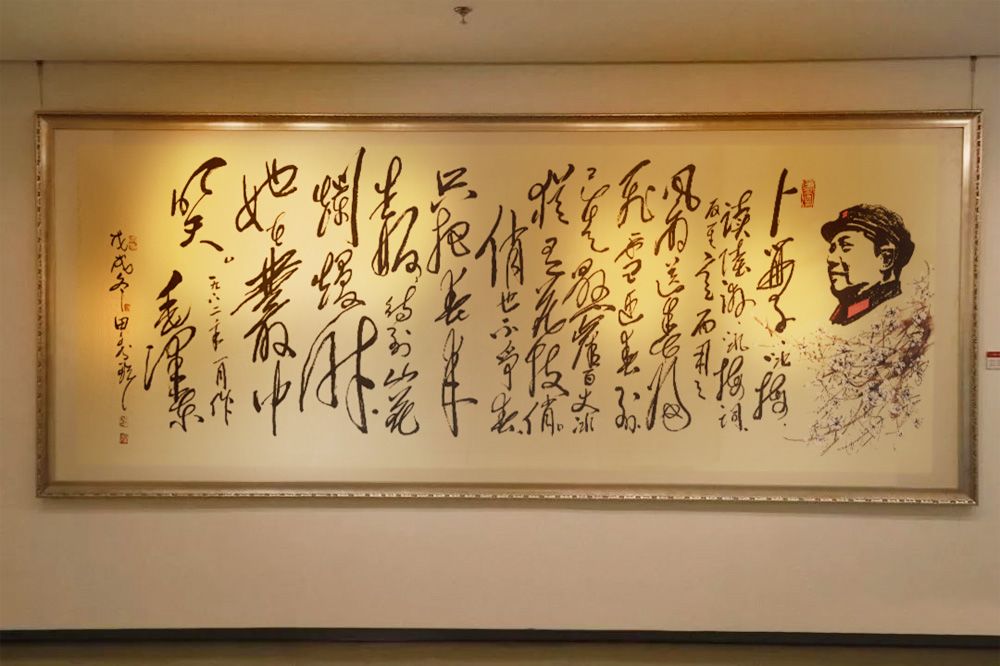 卜算子·咏梅
读陆游咏梅词
反其意而用之
风雨送春归
飞雪迎春到
已是悬崖百丈冰
犹有花枝俏。
俏也不争春
只把春来
报,待到山花
爛熳时
她在叢中
笑。
一九六二年一月作
毛泽东
戊戌冬 田